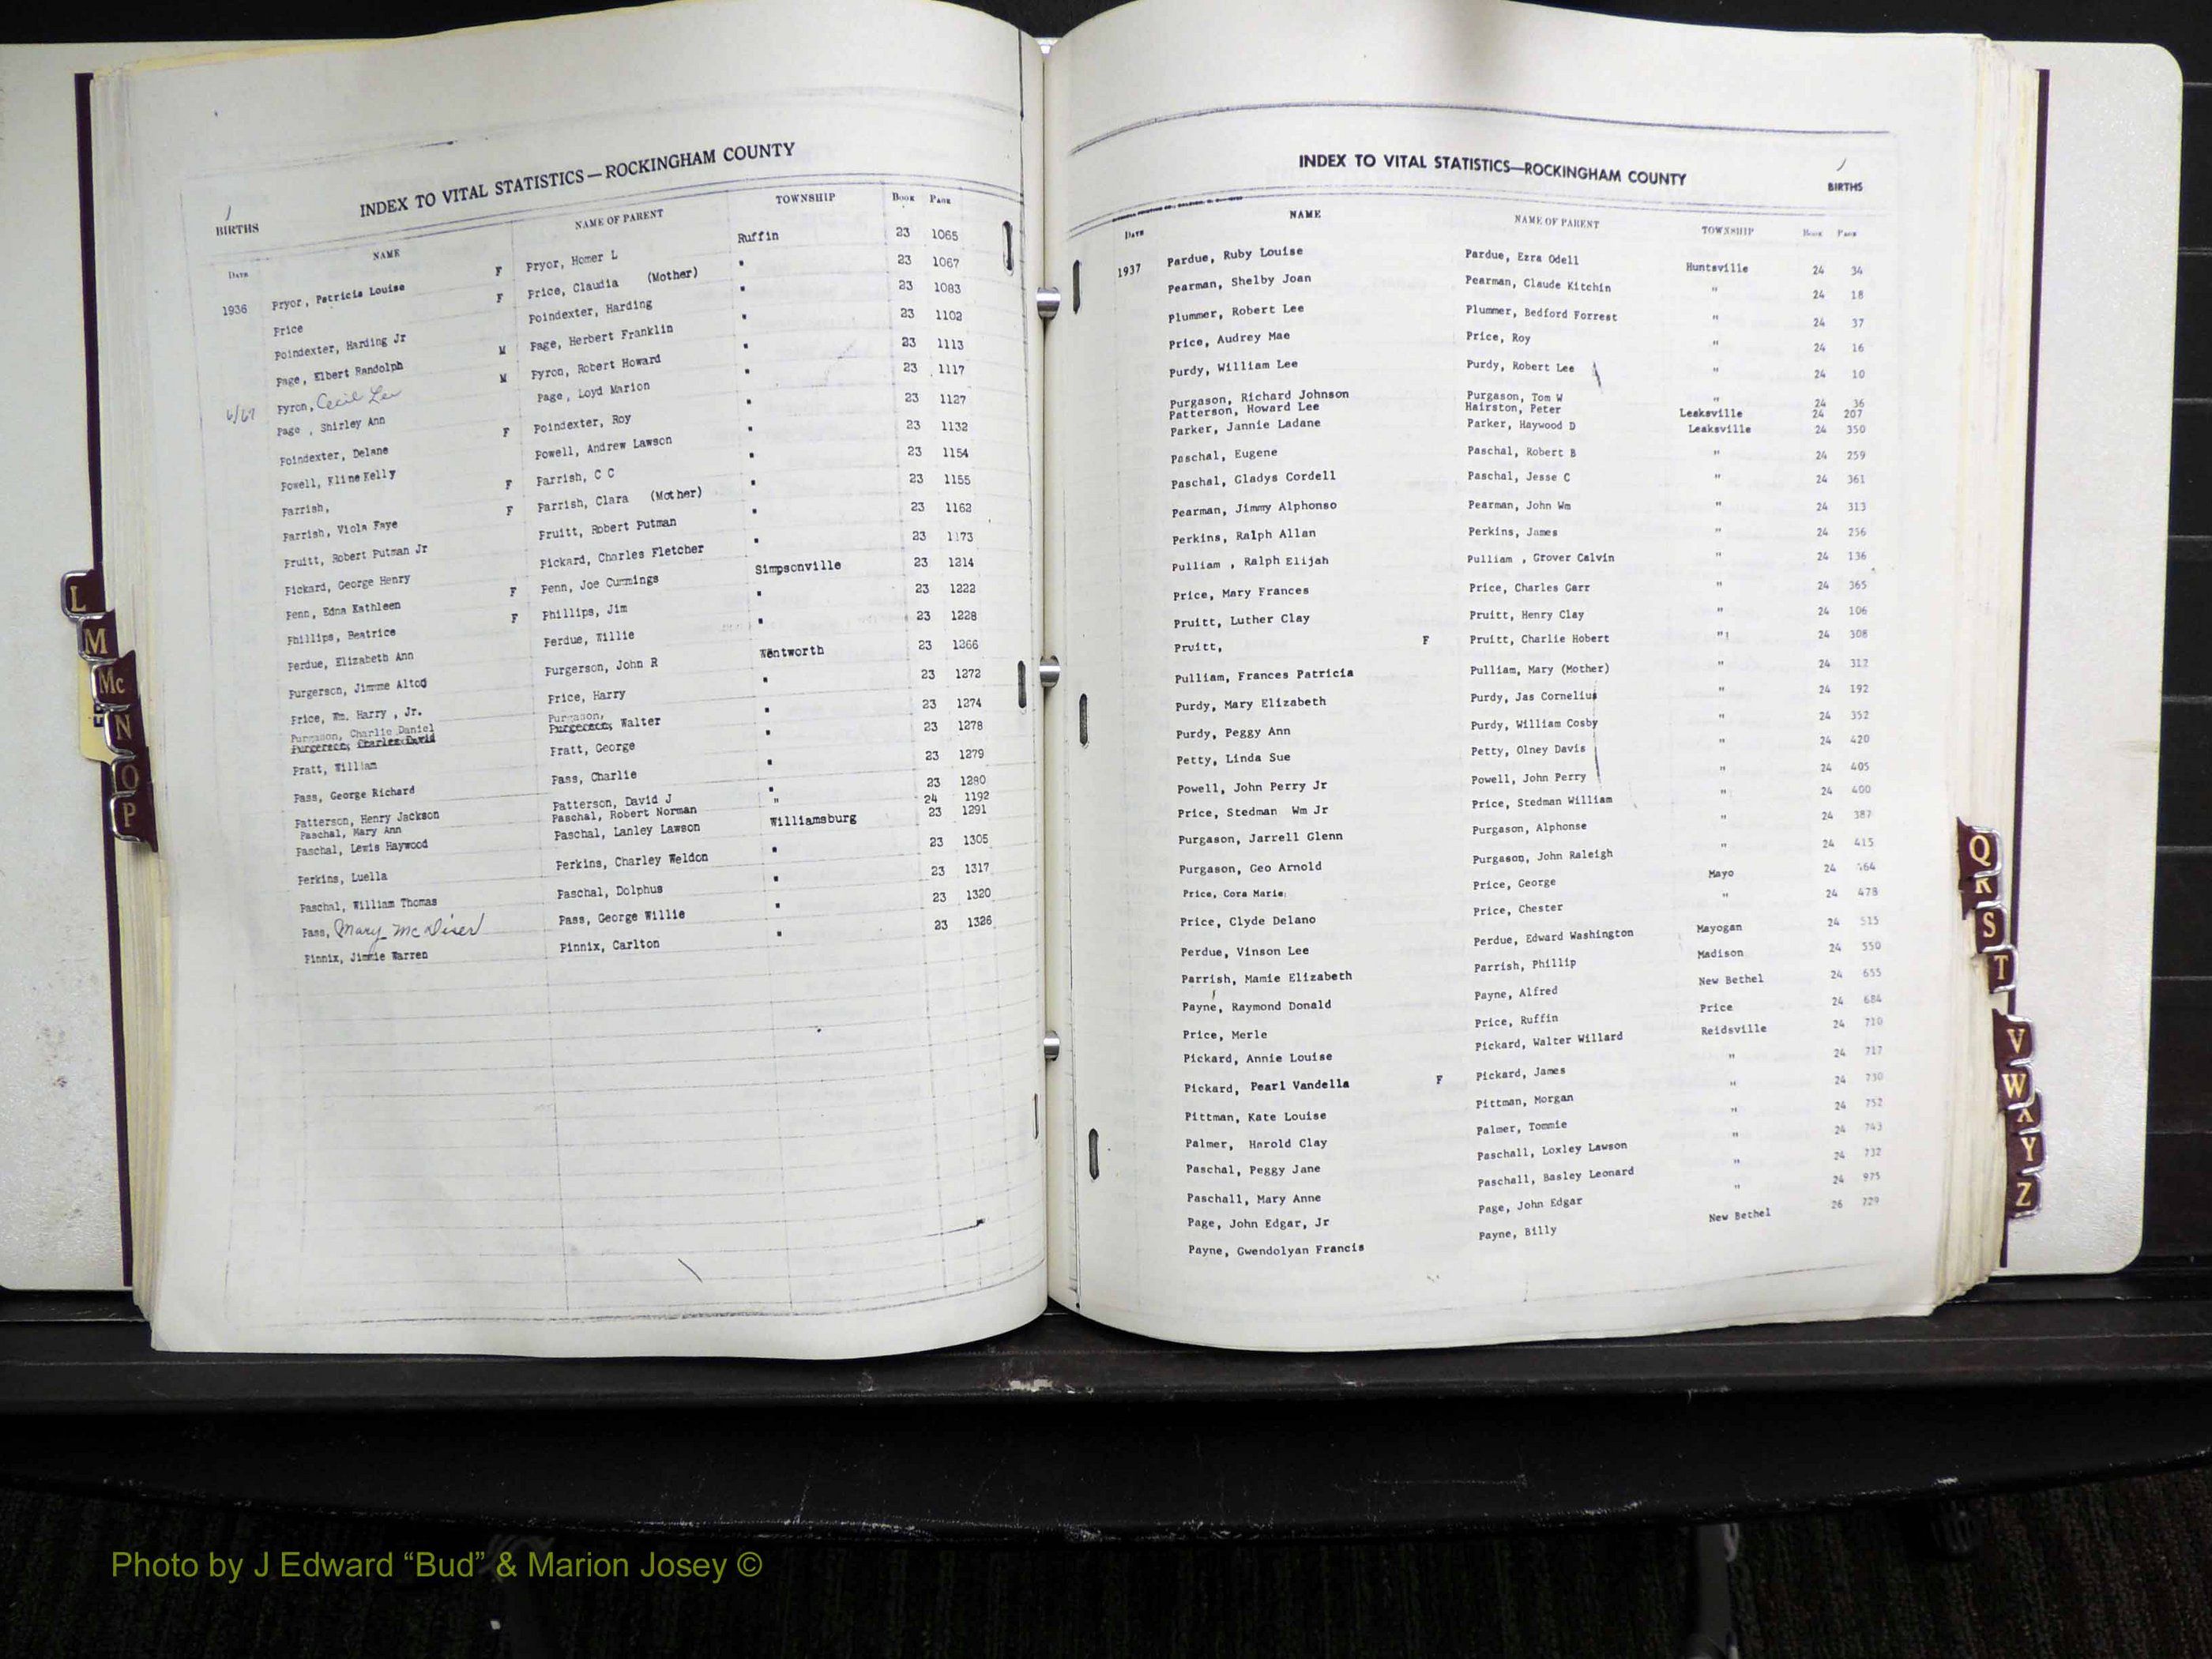 INDEX TO VITAL STATISTICS—ROCKINGHAM COUNTY
BIRTHS
DATE NAME NAME OF PARENT TOWNSHIP BOOK PAGE
1936 Pryor, Patricia Louise F Pryor, Homer L Ruffin 23 1065
Price F Price, Claudia (Mother) " 23 1067
Poindexter, Harding Jr Poindexter, Harding " 23 1083
Page, Elbert Randolph M Page, Herbert Franklin " 23 1102
6/67 Pyron, Cecil Lee M Pyron, Robert Howard " 23 1113
Page , Shirley Ann Page, Loyd Marion " 23 1117
Poindexter, Delane F Poindexter, Roy " 23 1127
Powell, Kline Kelly Powell, Andrew Lawson " 23 1132
Parrish, F Parrish, C C " 23 1154
Parrish, Viola Faye F Parrish, Clara (Mother) " 23 1155
Pruitt, Robert Putman Jr Pruitt, Robert Putman " 23 1162
Pickard, George Henry Pickard, Charles Fletcher " 23 1173
Penn, Edna Kathleen F Penn, Joe Cummings Simpsonville 23 1214
Phillips, Beatrice F Phillips, Jim " 23 1222
Perdue, Elizabeth Ann Perdue, Willie " 23 1228
Purgerson, Jimmie Altod Purgerson, John R Wentworth 23 1266
Price, Wm. Harry , Jr. Price, Harry " 23 1272
Purgason, Charlie Daniel Purgason,
Purgerson, Charles David Purgerson, Walter " 23 1274
Pratt, William Pratt, George " 23 1278
Pass, George Richard Pass, Charlie " 23 1279
Patterson, Henry Jackson Patterson, David J " 23 1280
Paschal, Mary Ann Paschal, Robert Norman " 24 1192
Paschal, Lewis Haywood Paschal, Lanley Lawson Williamsburg 23 1291
Perkins, Luella Perkins, Charley Weldon " 23 1305
Paschal, William Thomas Paschal, Dolphus " 23 1317
Pass, Mary Pass, George Willie " 23 1320
Pinnix, Jimmie Warren Pinnix, Carlton " 23 1326
L
M
Mc
N
O
P
INDEX TO VITAL STATISTICS—ROCKINGHAM COUNTY
BIRTHS
DATE NAME NAME OF PARENT TOWNSHIP BOOK PAGE
1937 Pardue, Ruby Louise Pardue, Ezra Odell Huntsville 24 34
Pearman, Shelby Joan Pearman, Claude Kitchin " 24 18
Plummer, Robert Lee Plummer, Bedford Forrest " 24 37
Price, Audrey Mae Price, Roy " 24 16
Purdy, William Lee Purdy, Robert Lee " 24 10
Purgason, Richard Johnson Purgason, Tom W " 24 36
Patterson, Howard Lee Hairston, Peter Leaksville 24 207
Parker, Jannie Ladane Parker, Haywood D Leaksville 24 350
Paschal, Eugene Paschal, Robert B " 24 259
Paschal, Gladys Cordell Paschal, Jesse C " 24 361
Pearman, Jimmy Alphonso Pearman, John Wm " 24 313
Perkins, Ralph Allan Perkins, James " 24 256
Pulliam , Ralph Elijah Pulliam , Grover Calvin " 24 136
Price, Mary Frances Price, Charles Garr " 24 365
Pruitt, Luther Clay Pruitt, Henry Clay " 24 106
Pruitt, F Pruitt, Charlie Hobert " 24 308
Pulliam, Frances Patricia Pulliam, Mary (Mother) " 24 312
Purdy, Mary Elizabeth Purdy, Jas Cornelius " 24 192
Purdy, Peggy Ann Purdy, William Cosby " 24 352
Petty, Linda Sue Petty, Olney Davis " 24 420
Powell, John Perry Jr Powell, John Perry " 24 405
Price, Stedman Wm Jr Price, Stedman William " 24 400
Purgason, Jarrell Glenn Purgason, Alphonse " 24 387
Purgason, Geo Arnold Purgason, John Raleigh " 24 415
Price, Cora Marie Price, George Mayo 24 464
Price, Clyde Delano Price, Chester " 24 478
Perdue, Vinson Lee Perdue, Edward Washington Mayogan 24 515
Parrish, Mamie Elizabeth Parrish, Phillip Madison 24 550
Payne, Raymond Donald Payne, Alfred New Bethel 24 655
Price, Merle Price, Ruffin Price 24 684
Pickard, Annie Louise Pickard, Walter Willard Reidsville 24 710
Pickard, Pearl Vandella F Pickard, James " 24 717
Pittman, Kate Louise Pittman, Morgan " 24 730
Palmer, Harold Clay Palmer, Tommie " 24 752
Paschal, Peggy Jane Paschall, Loxley Lawson " 24 743
Paschall, Mary Anne Paschall, Basley Leonard " 24 732
Page, John Edgar, Jr Page, John Edgar " 24 975
Payne, Gwendolyan Francis Payne, Billy New Bethel 26 729
Q
R
S
T
V
W
X
Y
Z
Photo by J Edward “Bud” & Marion Josey ©